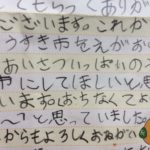 てもらってありが
ございます。これか
うすき市をえがおい
あいさついっぱいのう
市にしてほしいと思
います。はちなんてよ
～」と思っていました。
からもよろしくおねがい